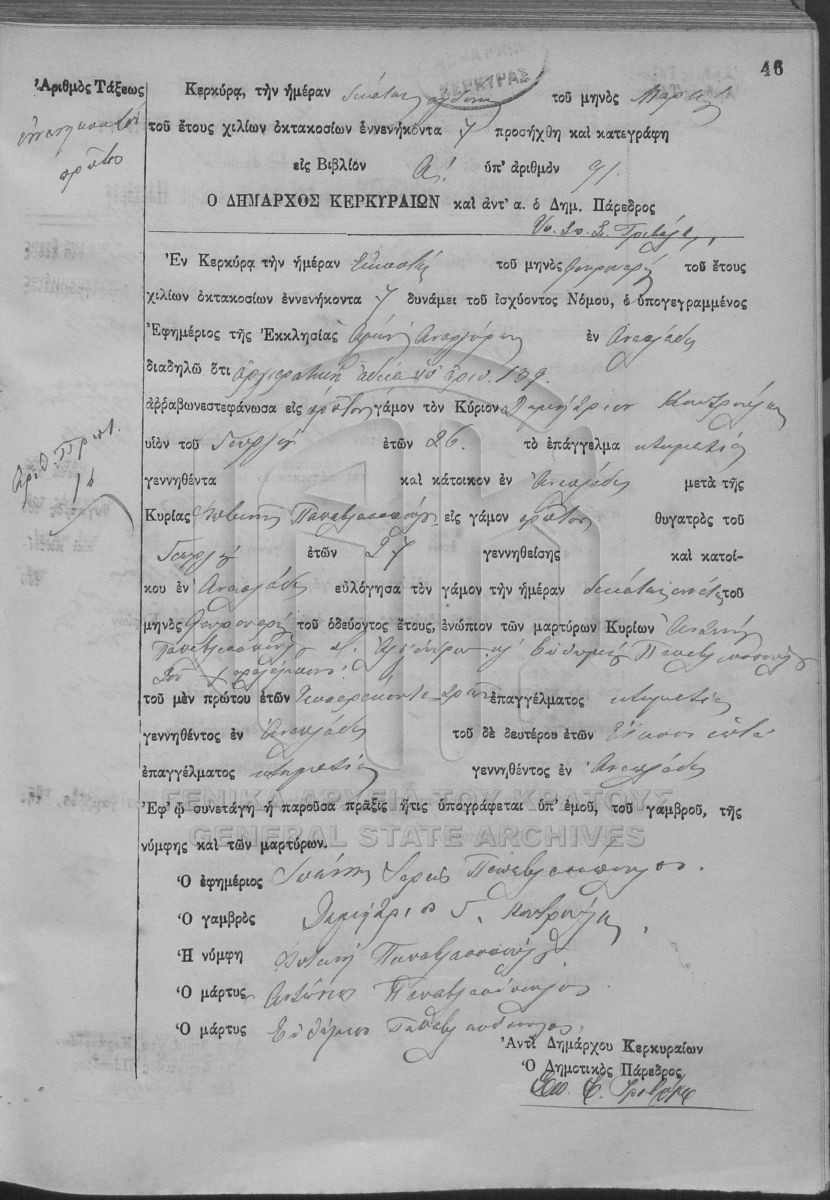 46
Ἀριθμὸς Τάξεως
πρῶτος
Κερκύρα, τὴν ἡμέραν δεκάτην ὀγδόην τοῦ μηνὸς Μαρτίου
τοῦ ἔτους χιλίων ὀκτακοσίων ἐννενήκοντα 7 προσήχθη καὶ κατεγράφη
εἰς Βιβλίον Α! ὑπ' ἀριθμὸν 91
Ο ΔΗΜΑΡΧΟΣ ΚΕΡΚΥΡΑΙΩΝ καὶ ἀντ' α. ὁ Δημ. Πάρεδρος
Ἐν Κερκύρᾳ τὴν ἡμέραν Εἰκοστὴν τοῦ μηνὸς Φεβρουαρίου τοῦ ἔτους
χιλίων ὀκτακοσίων ἐννενήκοντα 7 δυνάμει τοῦ ἰσχύοντος Νόμου, ὁ ὑπογεγραμμένος
Ἐφημέριος τῆς Ἐκκλησίας Ἁγίων Ἀναργύρων ἐν
διαδηλῶ ὅτι ἀρχιερατικῇ ἀδείᾳ ὑπ' ἀριθ. 139.
ἀρραβωνεστεφάνωσα εἰς πρῶτον γάμον τὸν Κύριον Δημήτριον
υἱὸν τοῦ Γεωργίου ἐτῶν 26. τὸ ἐπάγγελμα κτηματία
γεννηθέντα καὶ κάτοικον ἐν μετὰ τῆς
Ἀριθ. Πρωτ.
14
Κυρίας Φωτεινῆς Παπαβλασοπούλου εἰς γάμον πρῶτον θυγατρὸς τοῦ
Γεωργίου ἐτῶν 27 γεννηθείσης καὶ κατοί-
κου ἐν εὐλόγησα τὸν γάμον τὴν ἡμέραν δεκάτην ἐνάτην τοῦ
μηνὸς Φεβρουαρίου τοῦ ὁδεύοντος ἔτους, ἐνώπιον τῶν μαρτύρων Κυρίων Ἀντωνίου
Παπαβλασοπούλου καὶ Εὐθυμίου Παπαβλασοπούλου
τοῦ μὲν πρώτου ἐτῶν Τεσσαράκοντα ἐπαγγέλματος κτηματία
γεννηθέντος ἐν τοῦ δὲ δευτέρου ἐτῶν Εἴκοσι ἑπτὰ
ἐπαγγέλματος κτηματία γεννηθέντος ἐν
Ἐφ' ᾧ συνετάγη ἡ παροῦσα πρᾶξις ἥτις ὑπογράφεται ὑπ' ἐμοῦ, τοῦ γαμβροῦ, τῆς
νύμφης καὶ τῶν μαρτύρων.
ΓΕΝΙΚΑ ΑΡΧΕΙΑ ΤΟΥ ΚΡΑΤΟΥΣ
GENERAL STATE ARCHIVES
Ὁ ἐφημέριος Ἰωάννης Ἱερεὺς Παπαβλασόπουλος.
Ὁ γαμβρὸς Δημήτριος Γ.
Ἡ νύμφη Φωτεινὴ Παπαβλασοπούλου
Ὁ μάρτυς Ἀντώνιος Παπαβλασόπουλος.
Ὁ μάρτυς Εὐθύμιος Παπαβλασόπουλος.
Ἀντὶ Δημάρχου Κερκυραίων
Ὁ Δημοτικὸς Πάρεδρος